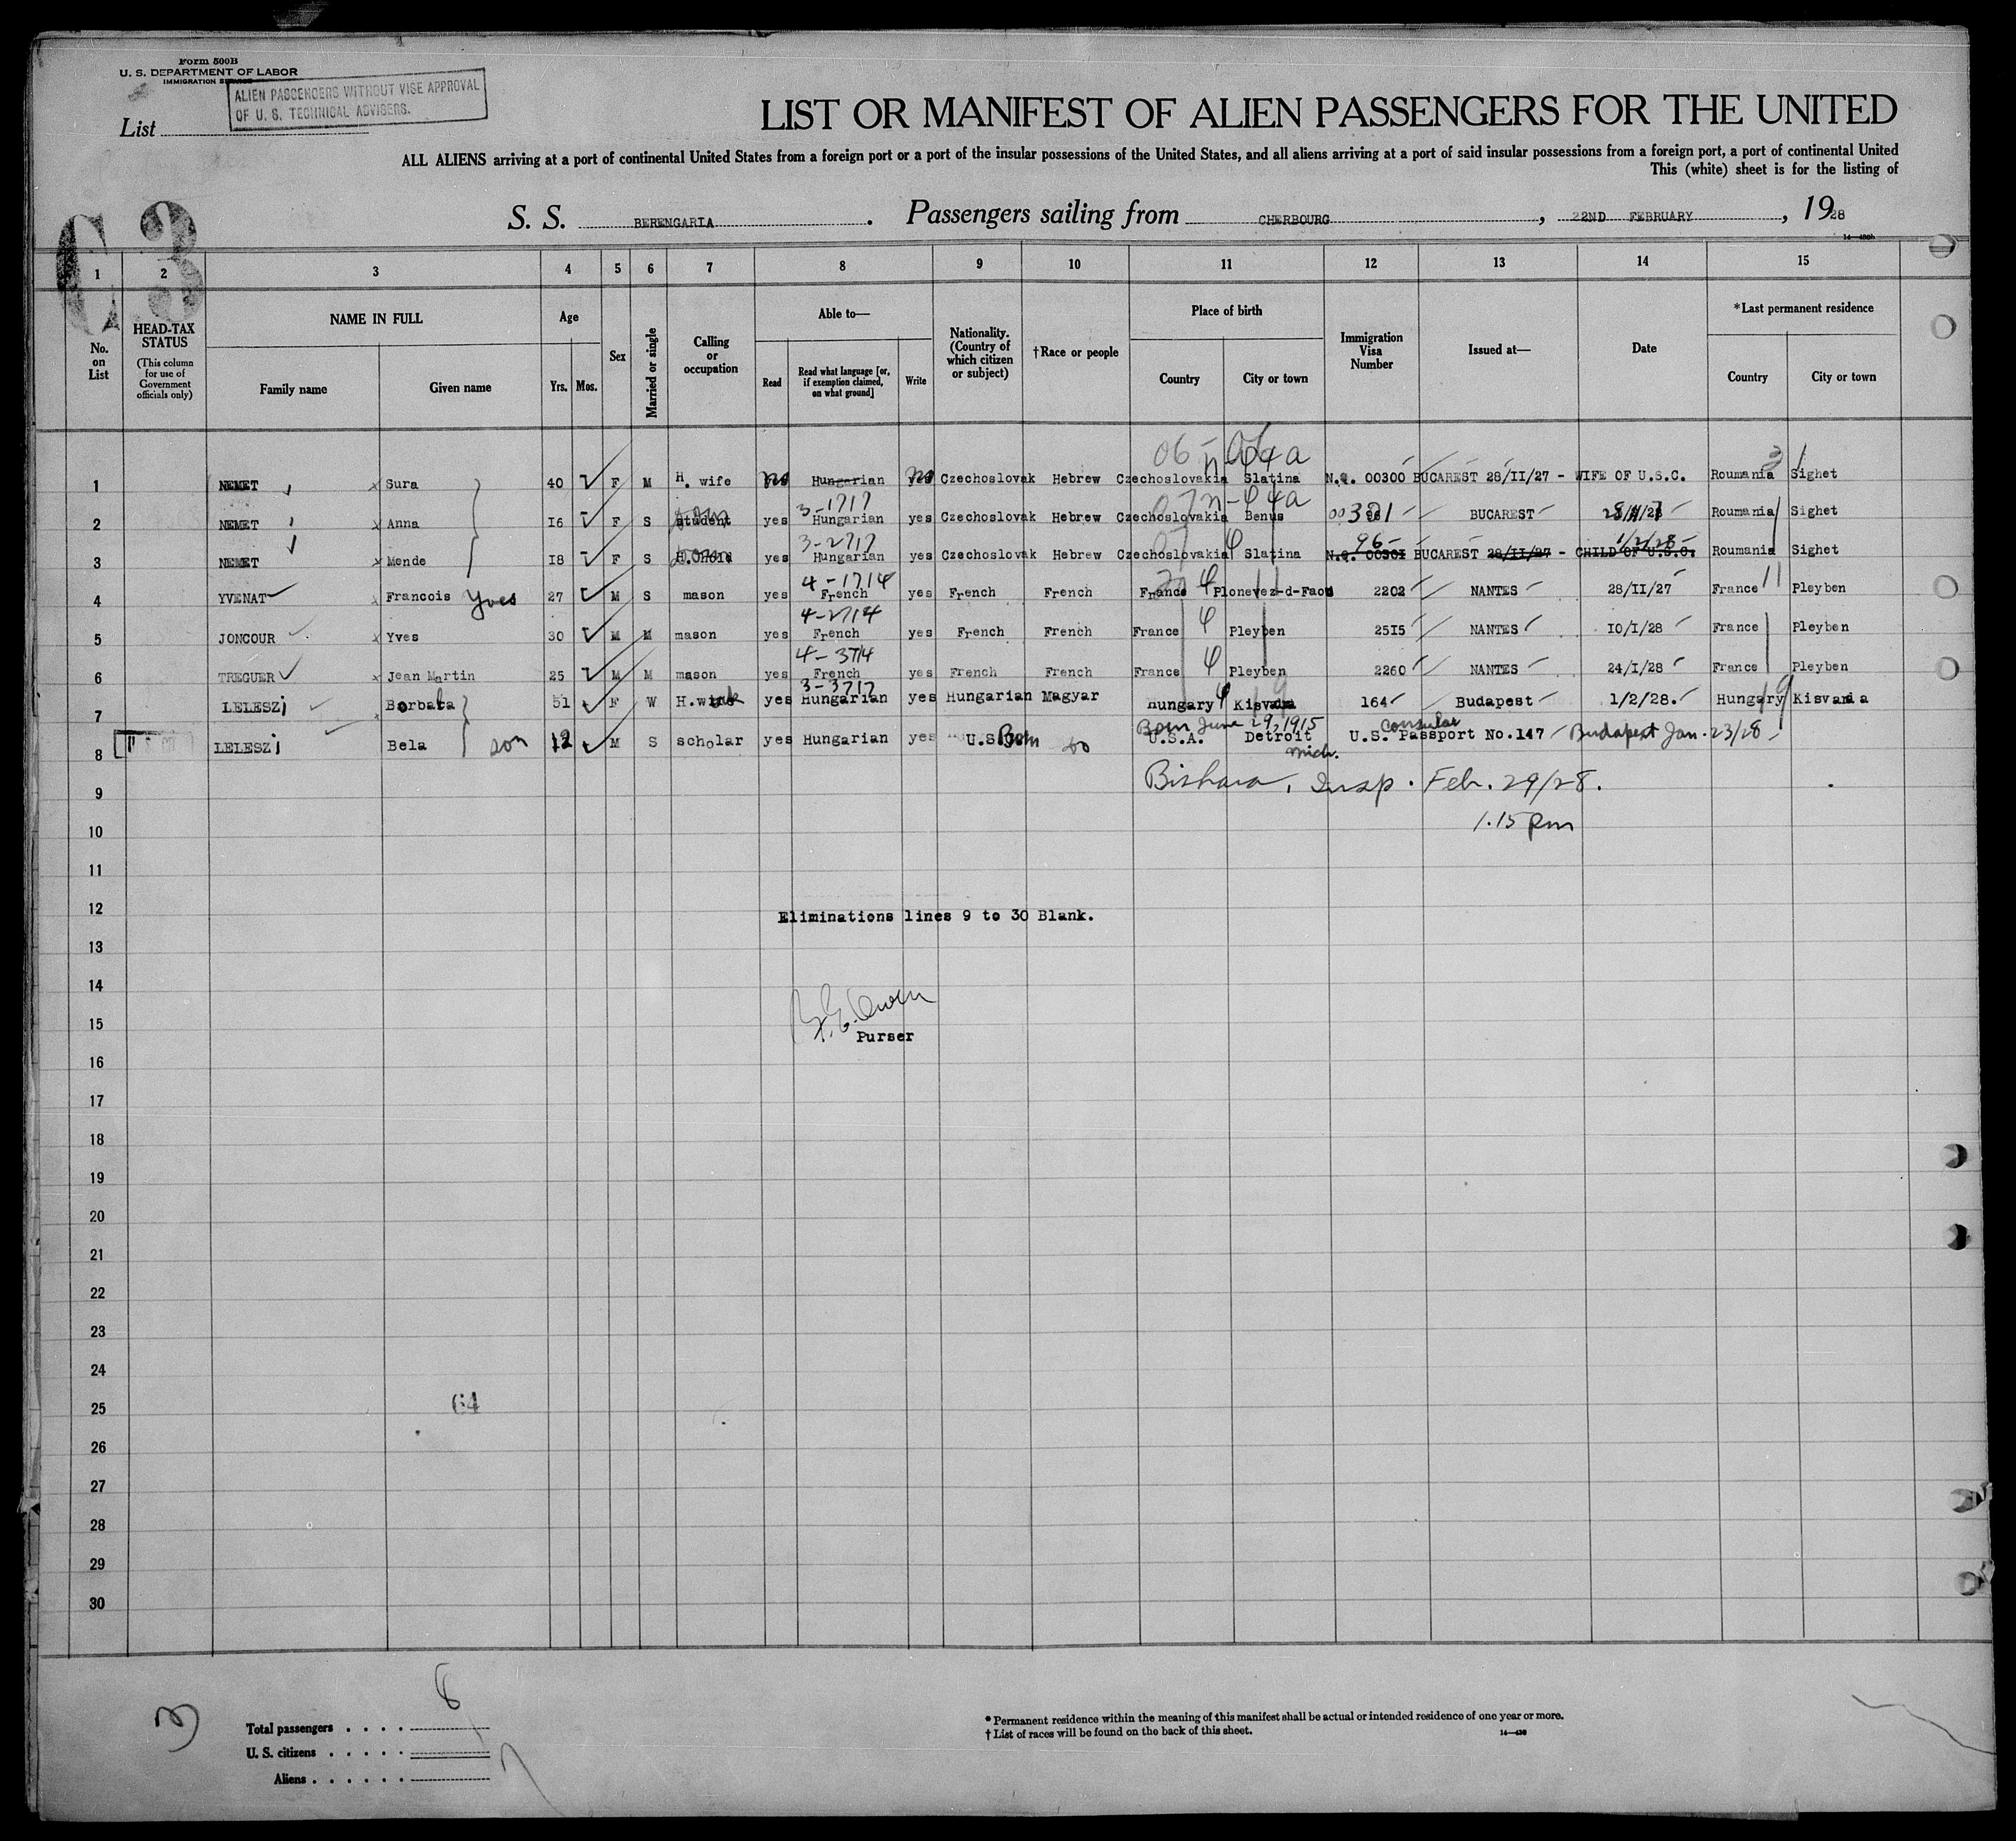 Form 500B
U. S. DEPARTMENT OF LABOR
IMMIGRATION SERVICE
ALIEN PASSENGERS WITHOUT VISE APPROVAL
OF U. S. TECHNICAL ADVISERS.
List
LIST OR MANIFEST OF ALIEN PASSENGERS FOR THE UNITED
ALL ALIENS arriving at a port of continental United States from a foreign port or a port of the insular possessions of the United States, and all aliens arriving at a port of said insular possessions from a foreign port, a port of continental United
This (white) sheet is for the listing of
C 3
S. S. BERENGARIA. Passengers sailing from CHERBOURG, 22ND FEBRUARY, 1928
14—430b
1 2 3 4 5 6 7 8 9 10 11 12 13 14 15
No. on List
HEAD-TAX STATUS
(This column for use of Government officials only)
NAME IN FULL
Family name Given name
Age
Yrs. Mos.
Sex
Married or single
Calling or occupation
Able to—
Read
Read what language [or, if exemption claimed, on what ground]
Write
Nationality. (Country of which citizen or subject)
†Race or people
Place of birth
Country City or town
Immigration Visa Number
Issued at—
Date
*Last permanent residence
Country City or town
1 NEMET Sura 40 F M H. wife no Hungarian no Czechoslovak Hebrew Czechoslovakia Slatina N.Q. 00300 BUCAREST 28/II/27 - WIFE OF U.S.C. Roumania Sighet
3-1717
2 NEMET Anna 16 F S student yes Hungarian yes Czechoslovak Hebrew Czechoslovakia Benus 00301 BUCAREST Roumania Sighet
3-2717 96 1/2/28
3 NEMET Mende 18 F S yes Hungarian yes Czechoslovak Hebrew Czechoslovakia Slatina N.Q. 00301 BUCAREST 28/II/27 - CHILD OF U.S.C. Roumania Sighet
4-1714
4 YVENAT Francois Yves 27 M S mason yes French yes French French France Plonevez-d-Faou 2202 NANTES 28/II/27 France Pleyben
4-2714
5 JONCOUR Yves 30 M M mason yes French yes French French France Pleyben 2515 NANTES 10/I/28 France Pleyben
4-3714
6 TREGUER Jean Martin 25 M M mason yes French yes French French France Pleyben 2260 NANTES 24/I/28 France Pleyben
3-3717
7 LELESZi Borbala 51 F W H. yes Hungarian yes Hungarian Magyar Hungary Kisvarda 164 Budapest 1/2/28. Hungary Kisvarda
Born June 29, 1915 Consular
8 LELESZi Bela son 12 M S scholar yes Hungarian yes U.S. Born U.S.A. Detroit Mich. U.S. Passport No.147 Budapest Jan. 23/28
9 Bishara, Insp. Feb. 29/28.
10 1.15 pm
11
12 Eliminations lines 9 to 30 Blank.
13
14
15
Purser
16
17
18
19
20
21
22
23
24
25 64
26
27
28
29
30
Total passengers . . . . 8
U. S. citizens . . . . . 1
Aliens . . . . . . 7
* Permanent residence within the meaning of this manifest shall be actual or intended residence of one year or more.
† List of races will be found on the back of this sheet.